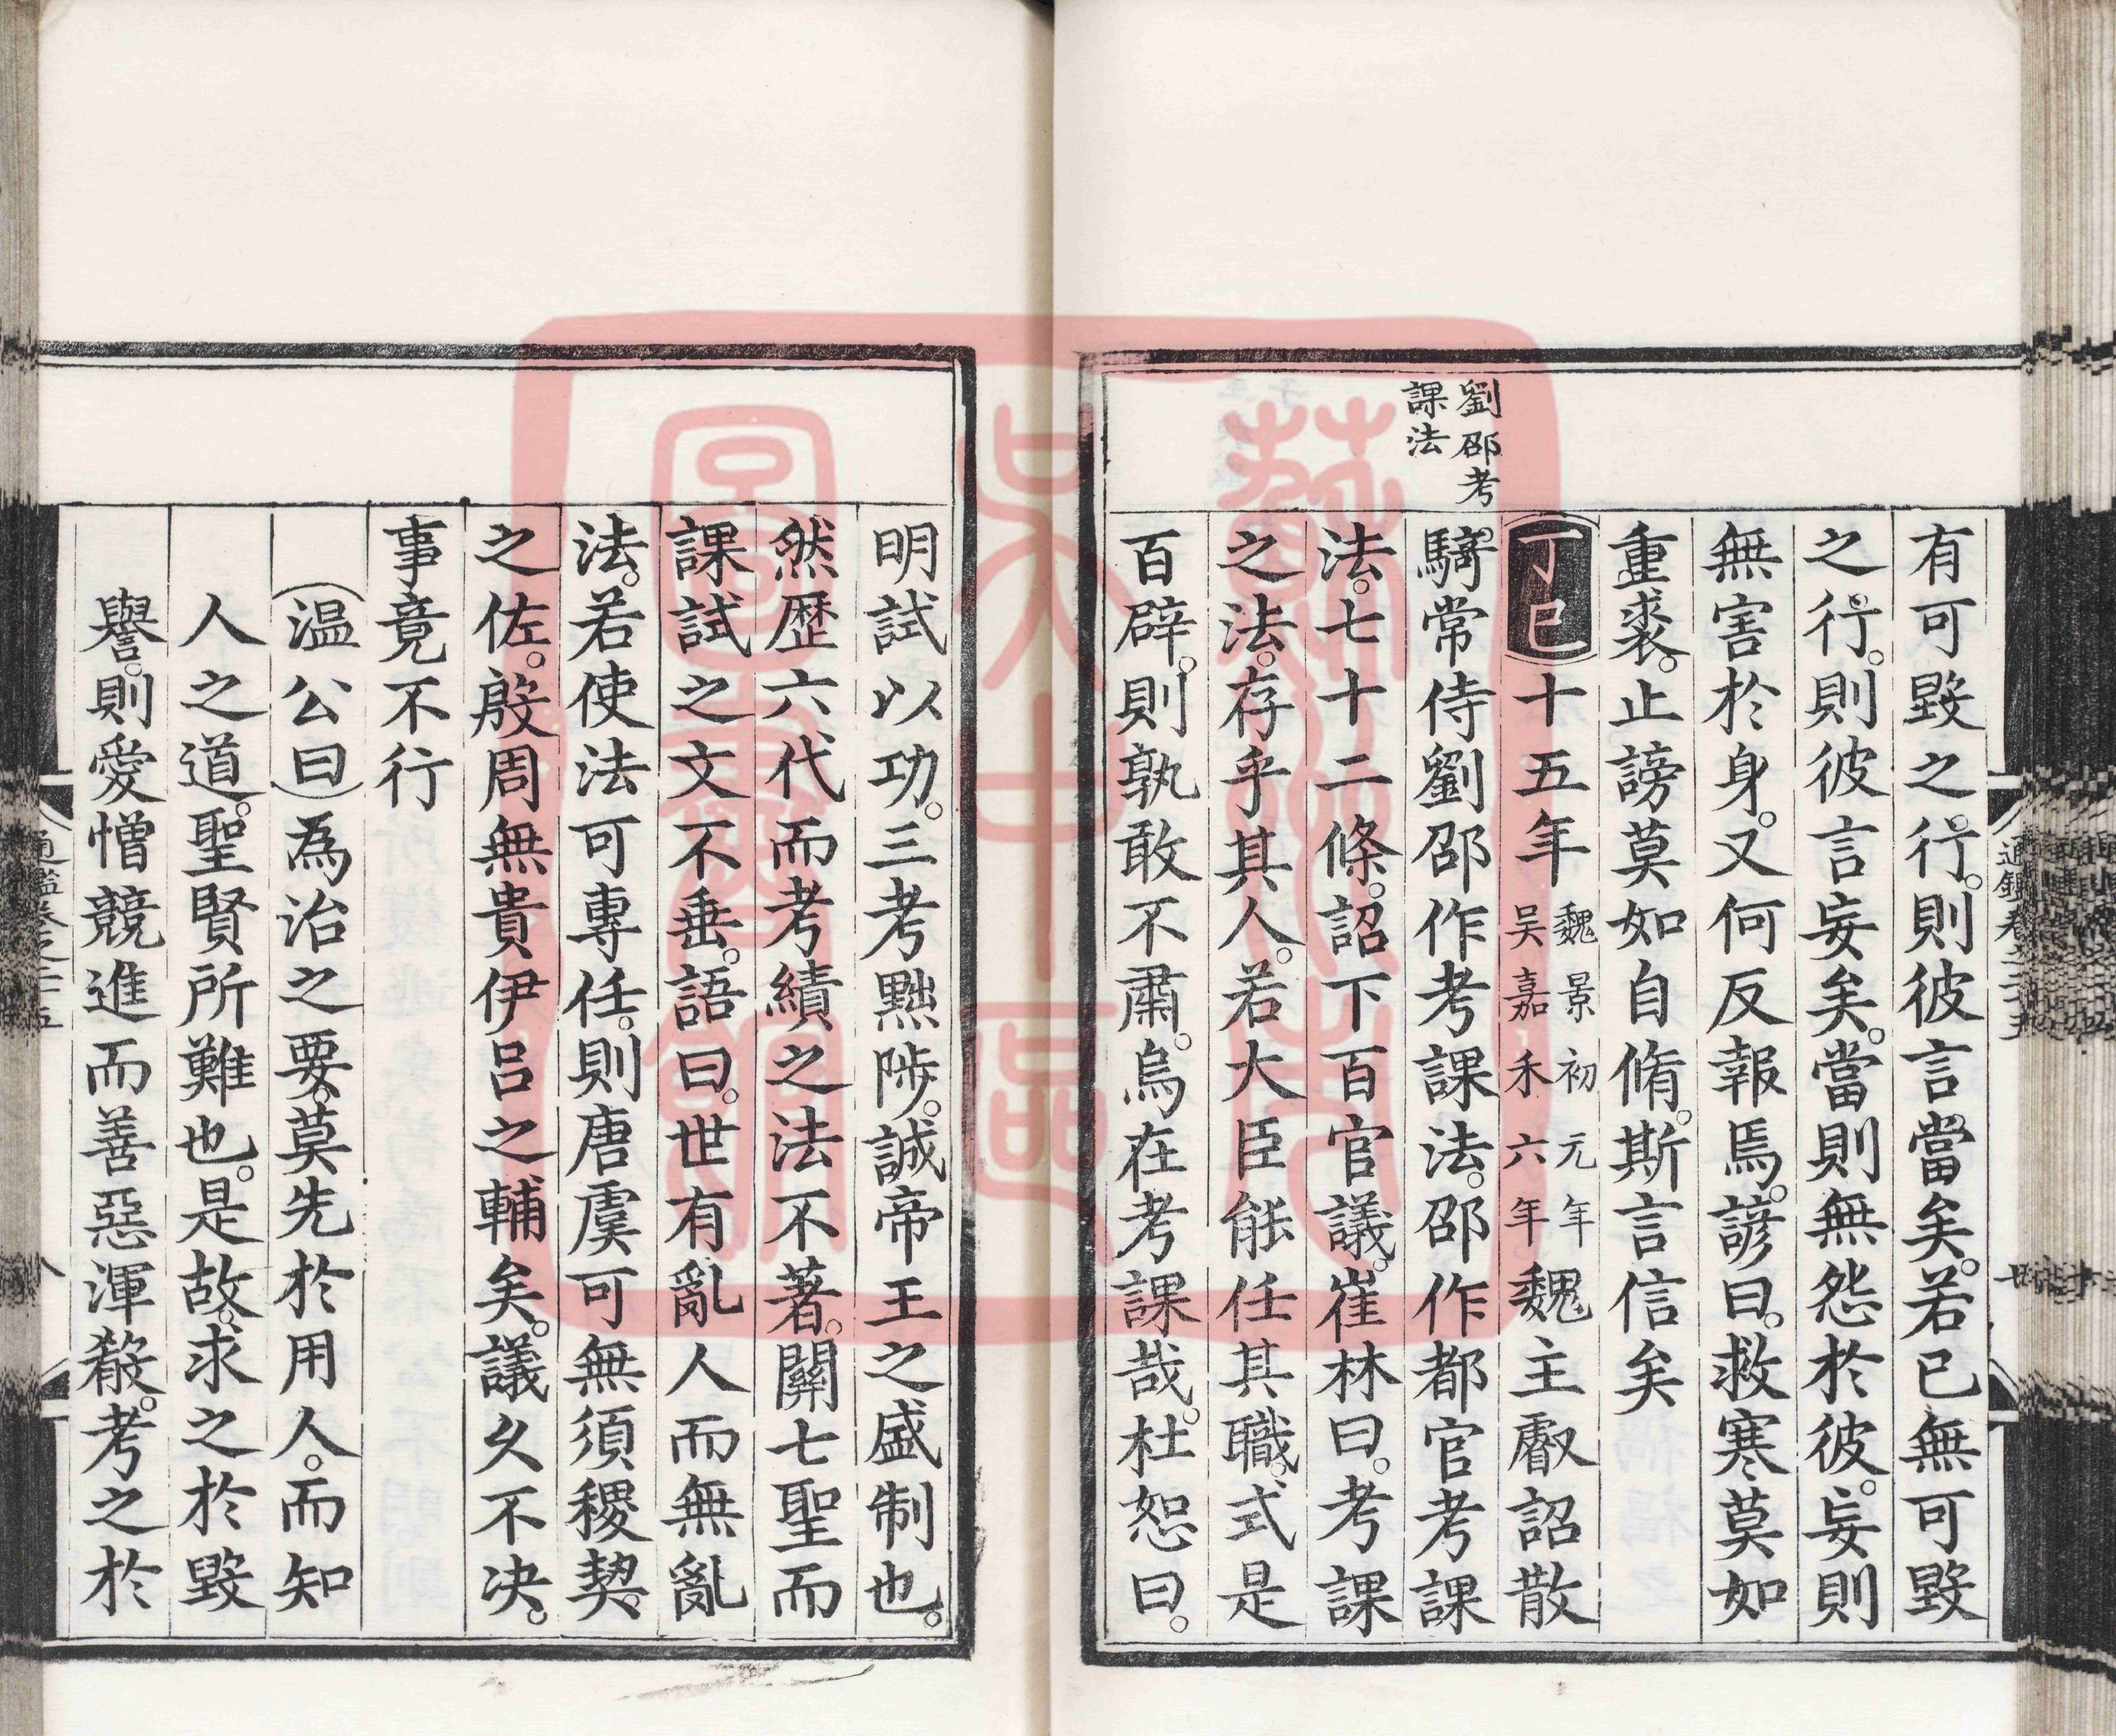 有可毀之行。則彼言當矣。若已無可毀
之行。則彼言妄矣。當則無怨於彼。妄則
無害於身。又何反報焉。諺曰。救寒莫如
重裘。止謗莫如自脩。斯言信矣
丁巳十五年魏景初元年吴嘉禾六年。魏主叡詔散
劉邵考
課法
騎常侍劉邵作考課法。邵作都官考課
法。七十二條。詔下百官議。崔林曰。考課
之法。存乎其人。若大臣能任其職。式是
百辟。則孰敢不肅。烏在考課哉。杜恕曰。
明試以功。三考黜陟。誠帝王之盛制也。
然歷六代而考績之法不著。關七聖而
課試之文不垂。語曰。世有亂人而無亂
法。若使法可專任。則唐虞可無須稷契。
之佐。殷周無貴伊呂之輔矣。議久不决。
事竟不行
温公曰為治之要。莫先於用人。而知
人之道。聖賢所難也。是故。求之於毀
譽。則愛憎競進而善惡渾殽。考之於
通鑑卷之二十五
蘇州市吴中區圖書館